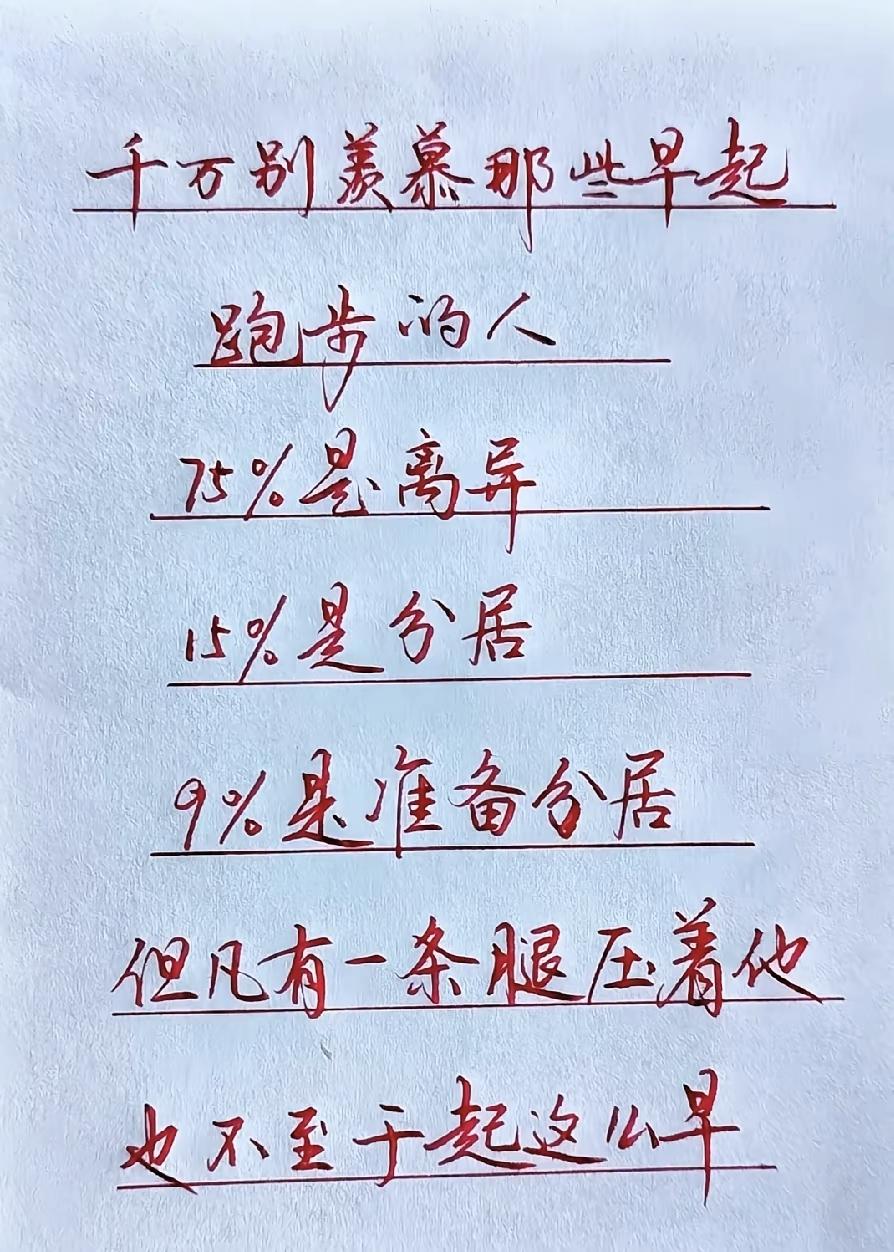 千万别羡慕那些早起
跑步的人
75%是离异
15%是分居
9%是准备分居
但凡有一条腿压着他
也不至于起这么早